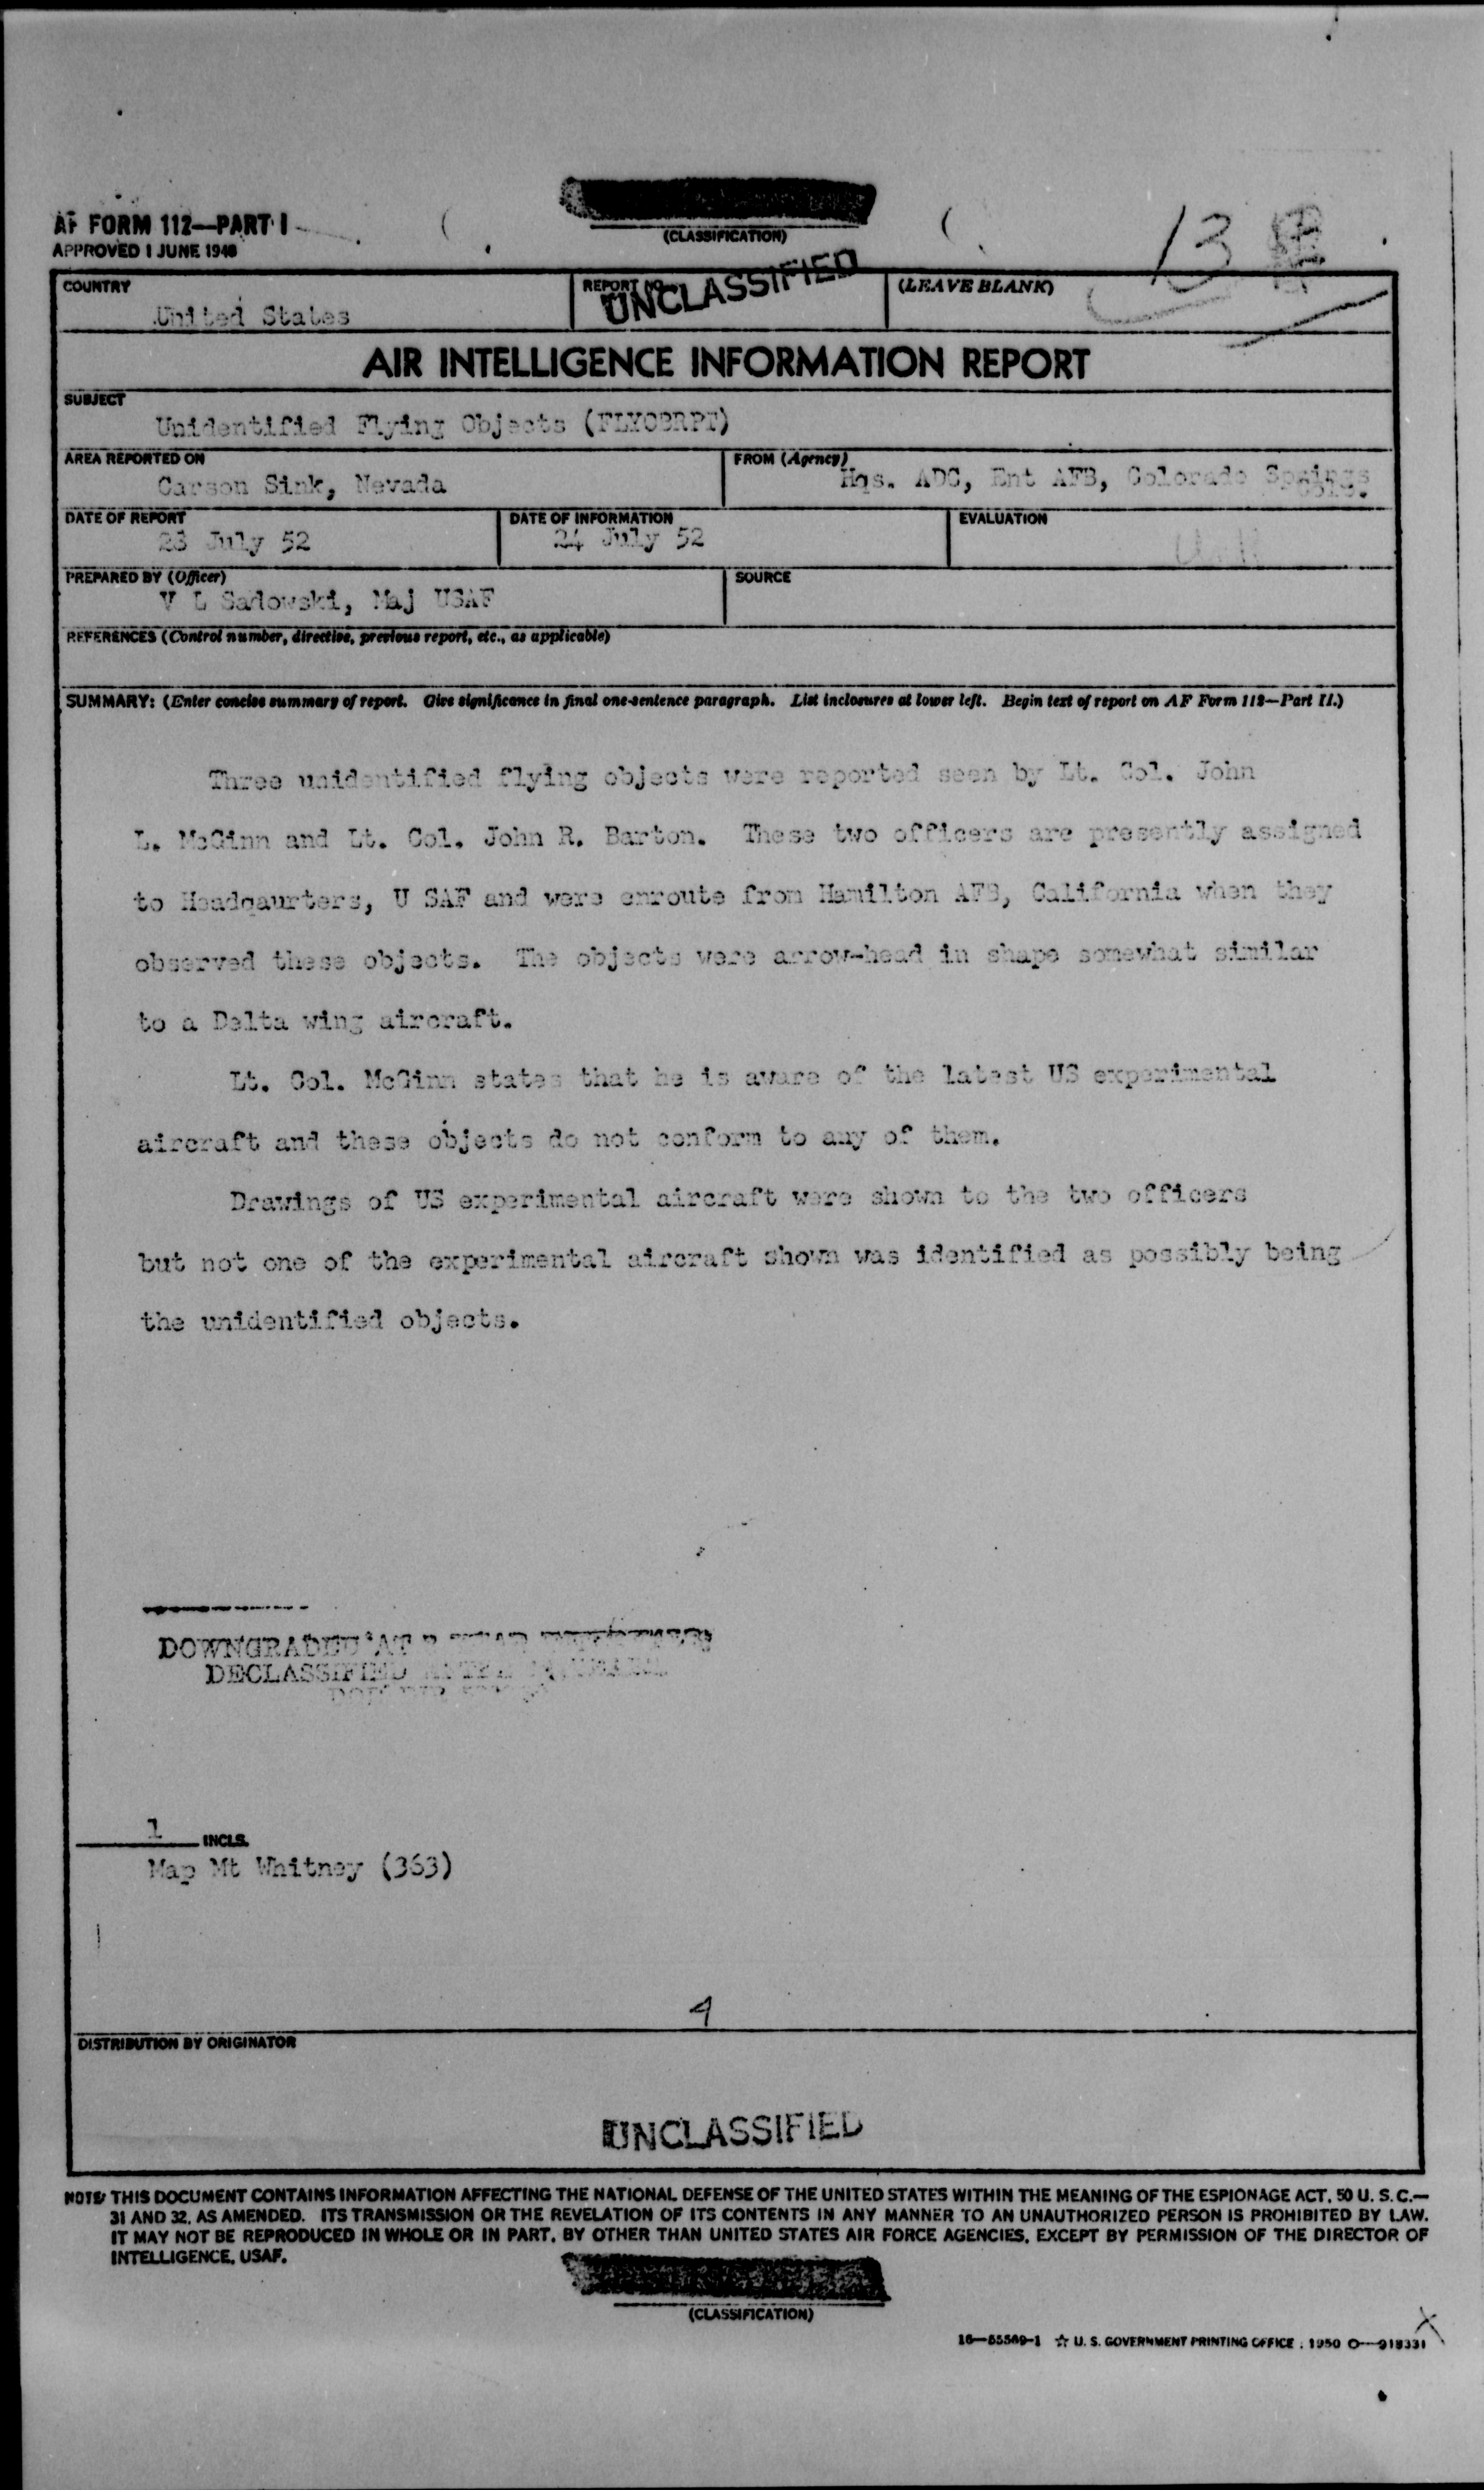 AF FORM 112—PART I
APPROVED 1 JUNE 1948
(CLASSIFICATION)
13
COUNTRY
United States
REPORT NO.
UNCLASSIFIED
(LEAVE BLANK)
AIR INTELLIGENCE INFORMATION REPORT
SUBJECT
Unidentified Flying Objects (FLYOBRPT)
AREA REPORTED ON
Carson Sink, Nevada
FROM (Agency)
Hqs. ADC, Ent AFB, Colorado Springs
Colo.
DATE OF REPORT
28 July 52
DATE OF INFORMATION
24 July 52
EVALUATION
PREPARED BY (Officer)
V L Sadowski, Maj USAF
SOURCE
REFERENCES (Control number, directive, previous report, etc., as applicable)
SUMMARY: (Enter concise summary of report. Give significance in final one-sentence paragraph. List inclosures at lower left. Begin text of report on AF Form 112—Part II.)
Three unidentified flying objects were reported seen by Lt. Col. John
L. McGinn and Lt. Col. John R. Barton. These two officers are presently assigned
to Headqaurters, U SAF and were enroute from Hamilton AFB, California when they
observed these objects. The objects were arrow-head in shape somewhat similar
to a Delta wing aircraft.
Lt. Col. McGinn states that he is aware of the latest US experimental
aircraft and these objects do not conform to any of them.
Drawings of US experimental aircraft were shown to the two officers
but not one of the experimental aircraft shown was identified as possibly being
the unidentified objects.
DOWNGRADED AT
DECLASSIFIED
1 INCLS.
Map Mt Whitney (363)
4
DISTRIBUTION BY ORIGINATOR
UNCLASSIFIED
NOTE: THIS DOCUMENT CONTAINS INFORMATION AFFECTING THE NATIONAL DEFENSE OF THE UNITED STATES WITHIN THE MEANING OF THE ESPIONAGE ACT, 50 U. S. C.—
31 AND 32, AS AMENDED. ITS TRANSMISSION OR THE REVELATION OF ITS CONTENTS IN ANY MANNER TO AN UNAUTHORIZED PERSON IS PROHIBITED BY LAW.
IT MAY NOT BE REPRODUCED IN WHOLE OR IN PART, BY OTHER THAN UNITED STATES AIR FORCE AGENCIES, EXCEPT BY PERMISSION OF THE DIRECTOR OF
INTELLIGENCE, USAF.
(CLASSIFICATION)
16—55569-1 ☆ U. S. GOVERNMENT PRINTING OFFICE : 1950 O—918331